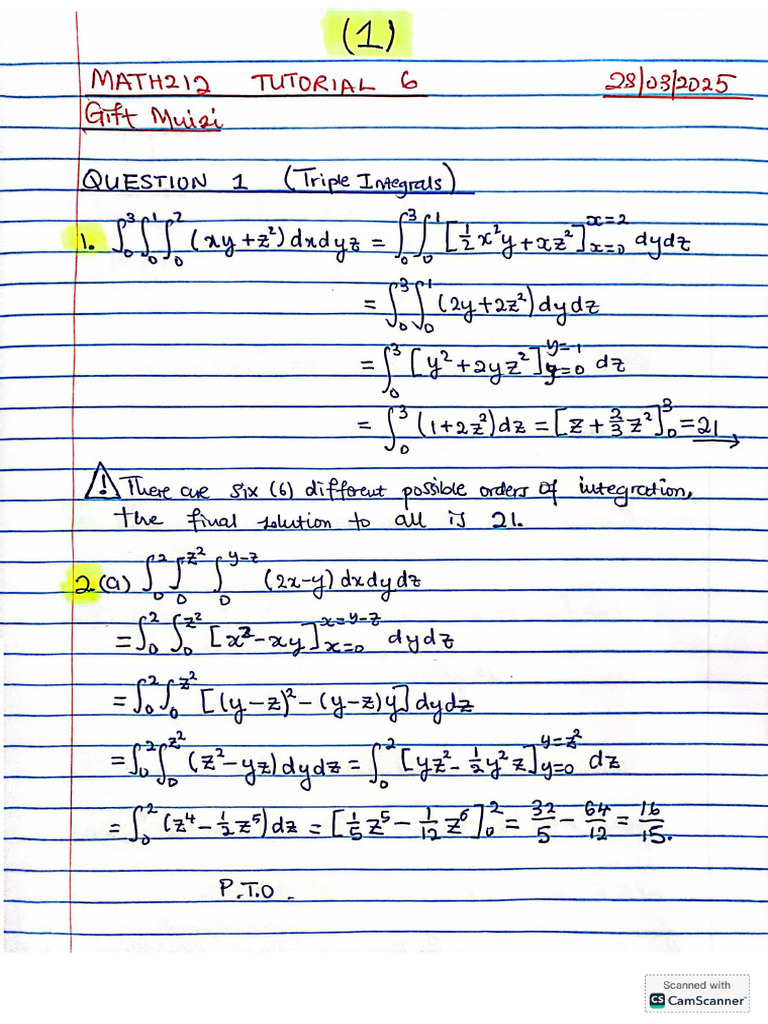 (1)
MATH212 TUTORIAL 6 28/03/2025
Gift Muizi
QUESTION 1 (Triple Integrals)
1. ∫₀³∫₀¹∫₀² (xy+z²) dxdyz = ∫₀³∫₀¹ [½x²y+xz²]ₓ₌₀ˣ⁼² dydz
= ∫₀³∫₀¹ (2y+2z²) dydz
= ∫₀³ [y²+2yz²] y=0 y=1 dz
= ∫₀³ (1+2z²) dz = [z+⅔z²]₀³ = 21
⚠ There are six (6) different possible orders of integration,
the final solution to all is 21.
2(a) ∫₀²∫₀^{z²}∫₀^{y-z} (2x-y) dxdydz
= ∫₀²∫₀^{z²} [x²-xy] x=0 x=y-z dydz
= ∫₀²∫₀^{z²} [(y-z)²-(y-z)y] dydz
= ∫₀²∫₀^{z²} (z²-yz) dydz = ∫₀² [yz²-½y²z] y=0 y=z² dz
= ∫₀² (z⁴-½z⁵) dz = [⅕z⁵-1/12 z⁶]₀² = 32/5 - 64/12 = 16/15.
P.T.O.
Scanned with
CS CamScanner